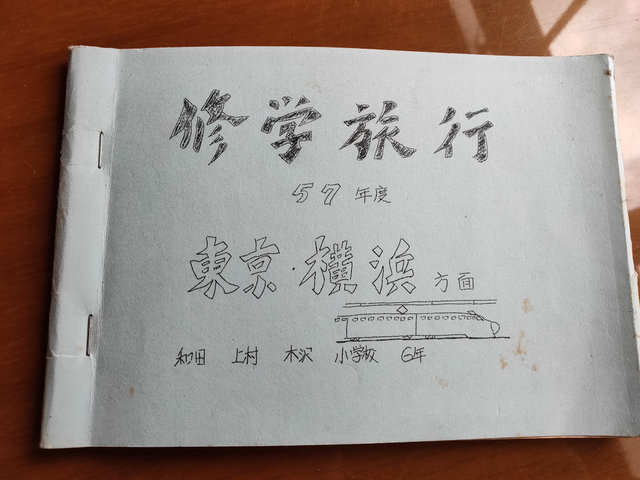 修学旅行
57年度
東京・横浜方面
和田 上村 木沢 小学校 6年